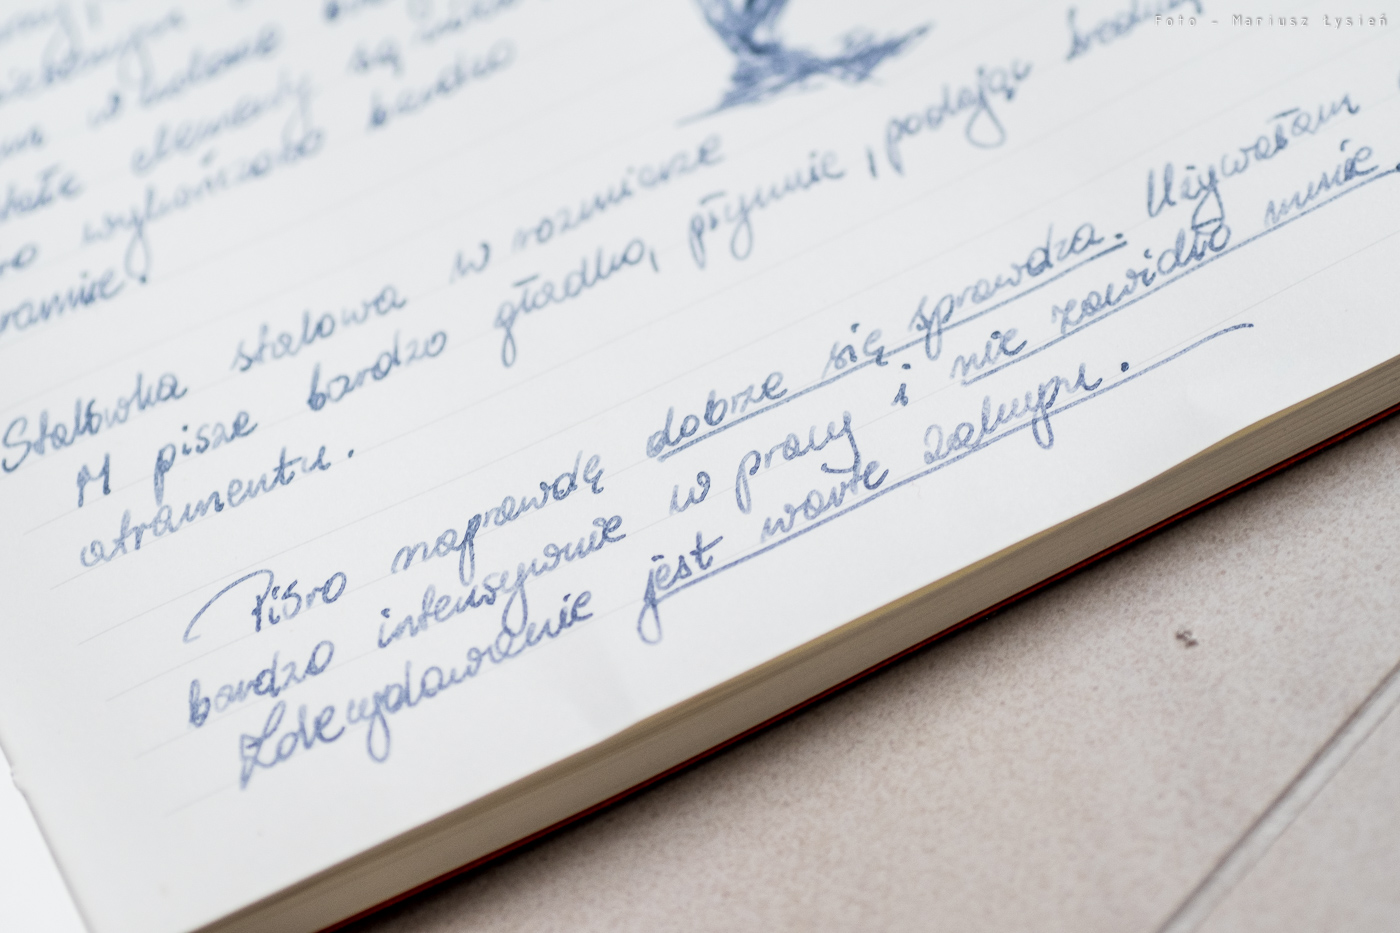 Foto - Mariusz Łysień
są
w bardzo
elementy
wykończono bardzo
Stalówka stalowa w rozmiarze
M pisze bardzo gładko, płynnie, podając
atramentu.
Pióro naprawdę dobrze się sprawdza. Używałam
bardzo intensywnie w pracy i nie zawiodło mnie.
Zdecydowanie jest warte zakupu.